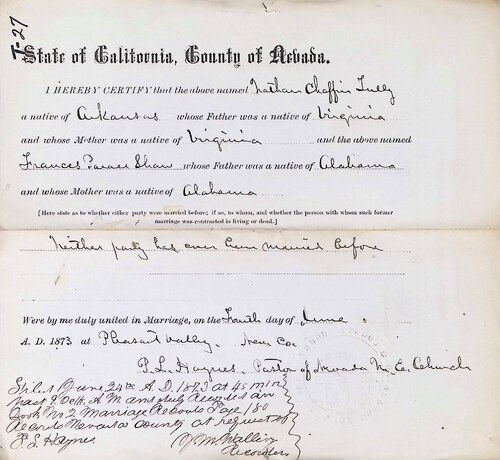 T-27
State of California, County of Nevada.
I HEREBY CERTIFY that the above named Nathan Chaffin Tully
a native of Arkansas whose Father was a native of Virginia
and whose Mother was a native of Virginia and the above named
Frances Shaw whose Father was a native of Alabama
and whose Mother was a native of Alabama
[Here state as to whether either party were married before; if so, to whom, and whether the person with whom such former
marriage was contracted is living or dead.]
Neither party has ever been married before
Were by me duly united in Marriage, on the Fourth day of June
A. D. 1873 at Pleasant Valley. Nev. Co.
P. L. Haynes. Pastor of Nevada M. E. Church
Filed June 24th A. D. 1873 at 45 min
past 9 Oclk A M and duly Recorded in
Book No 2 Marriage Records Page 180
Records Nevada County at request of
P. L. Haynes
Recorder